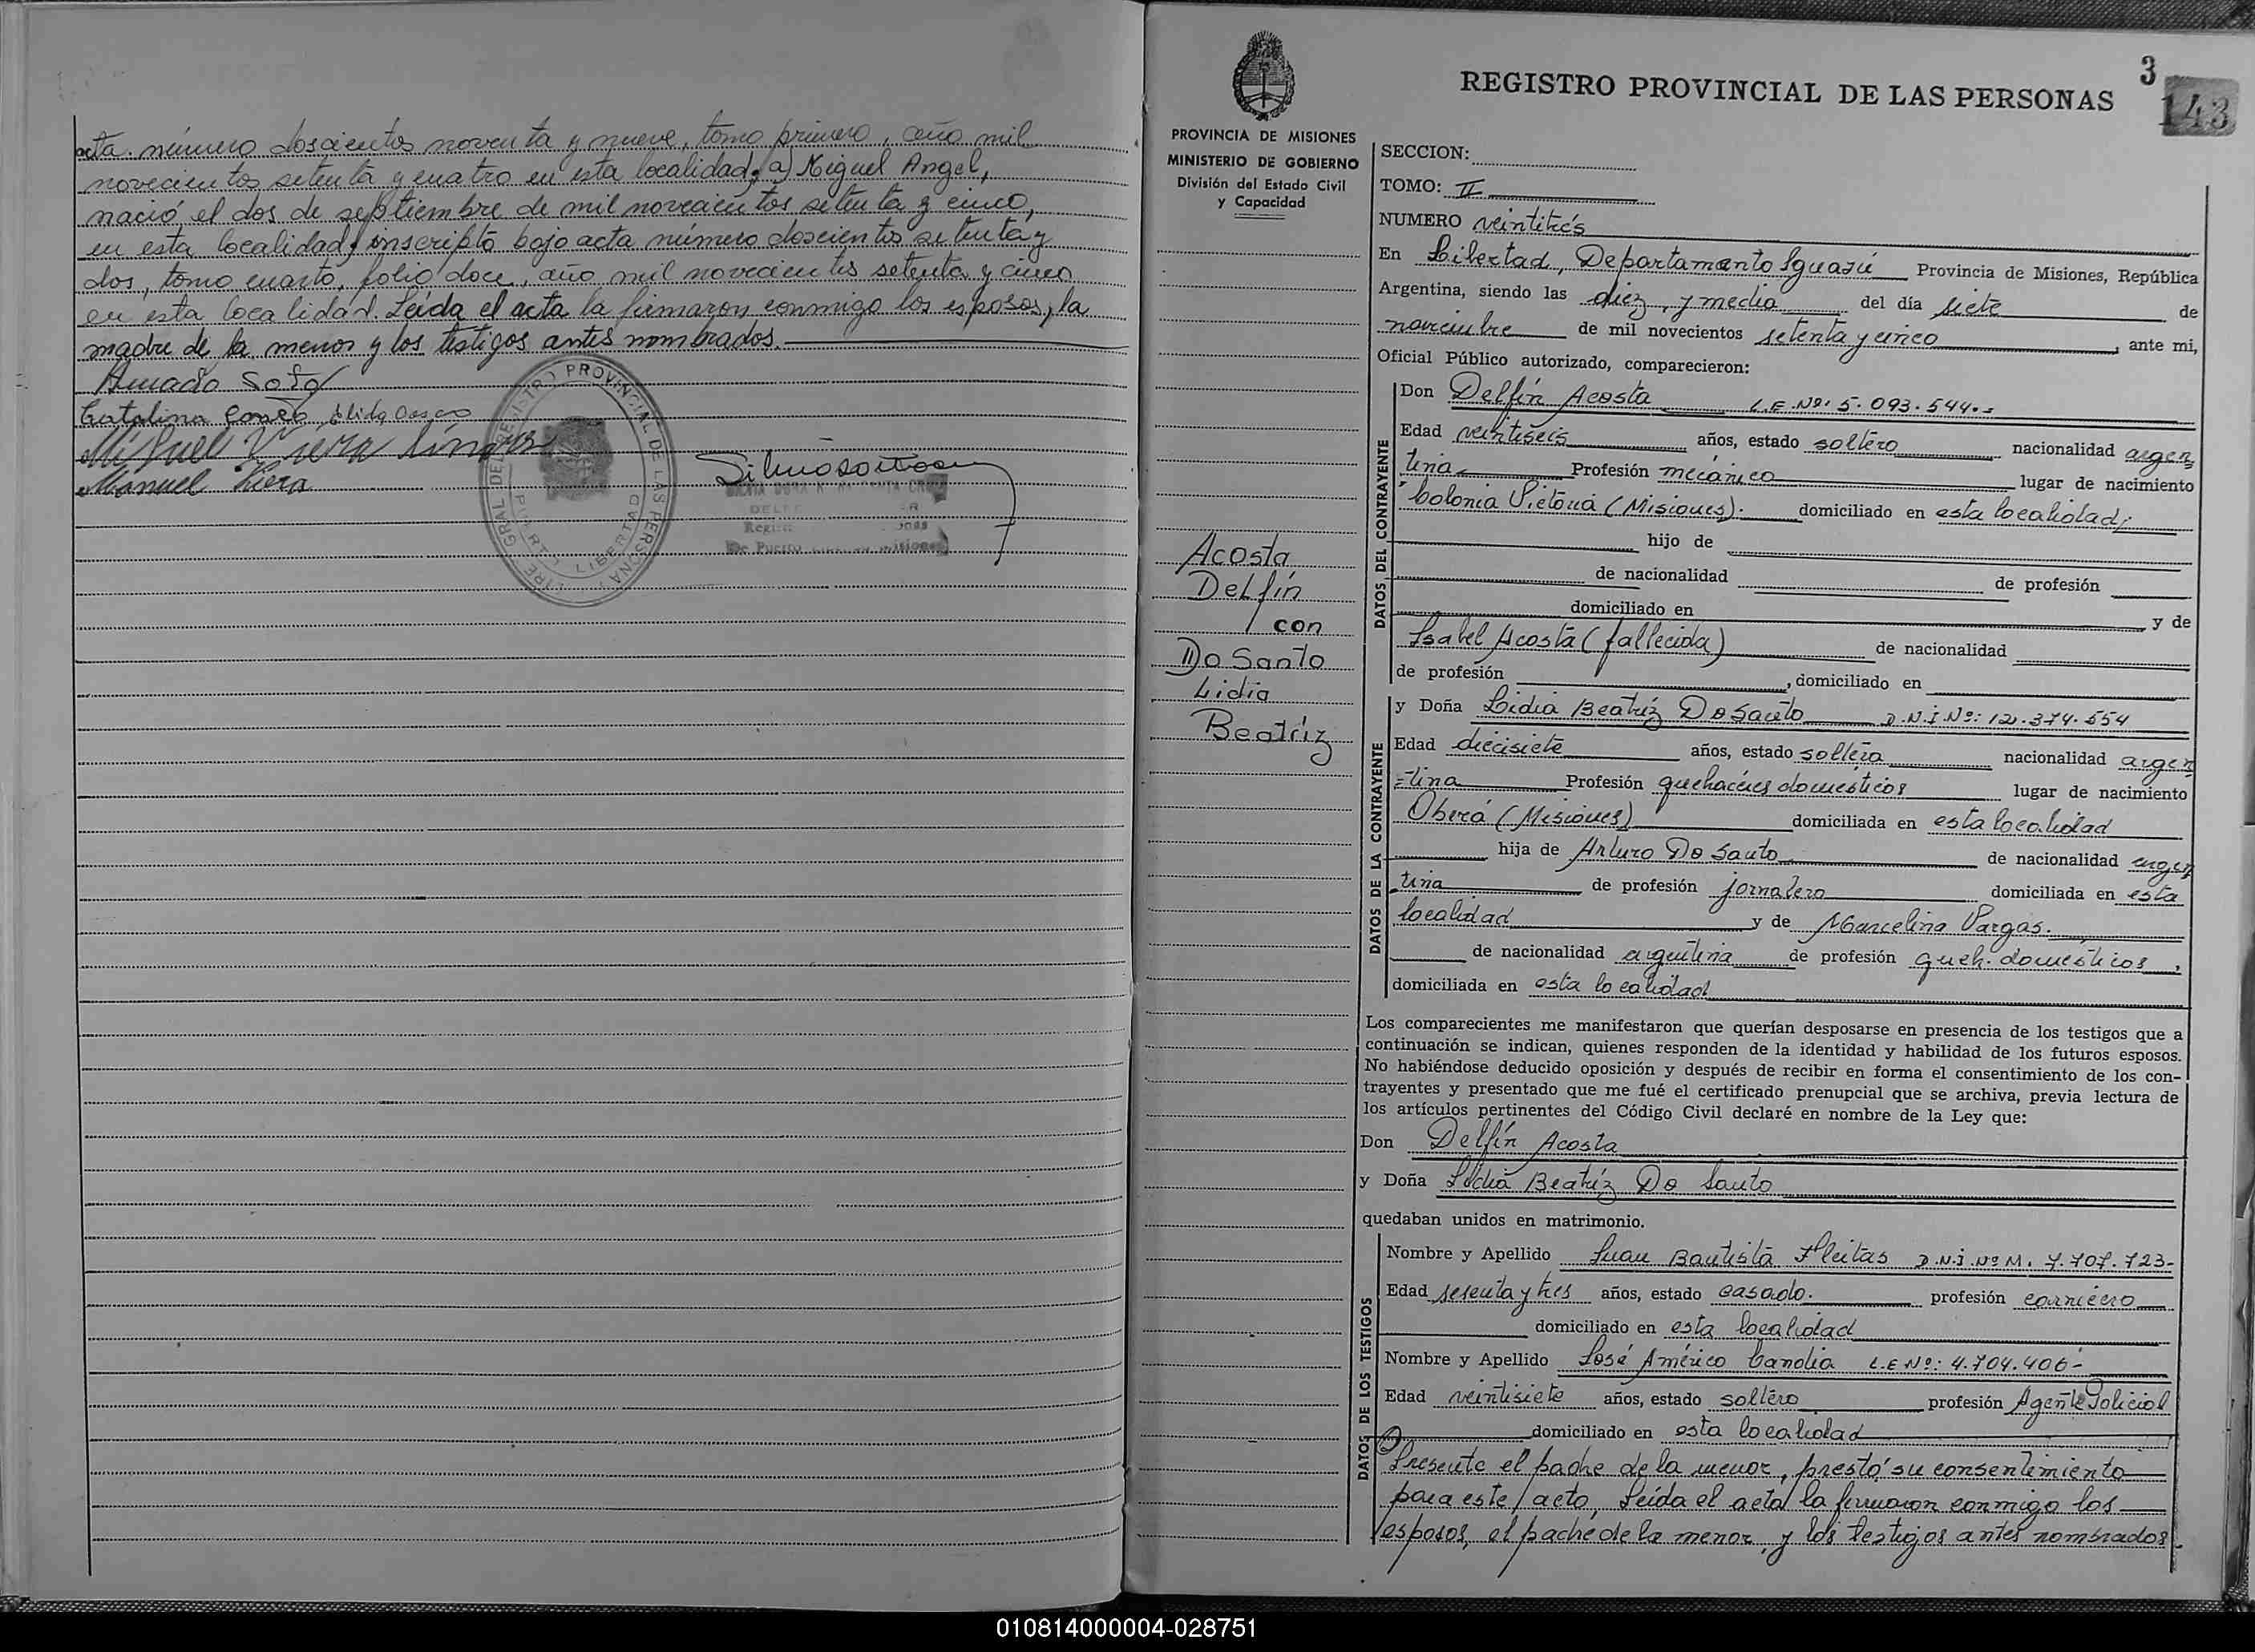 acta número doscientos noventa y nueve, tomo primero, año mil
novecientos setenta y cuatro en esta localidad; a) Miguel Angel,
nació el dos de septiembre de mil novecientos setenta y cinco,
en esta localidad, inscripto bajo acta número doscientos setenta y
dos, tomo cuarto, folio doce, año mil novecientos setenta y cinco
en esta localidad. Leída el acta la firmaron conmigo los esposos, la
madre de la menor y los testigos antes nombrados.
Amado Soto
Catalina
Miguel Viera
Manuel Viera
REGISTRO PROVINCIAL DE LAS PERSONAS
PUERTO LIBERTAD
3
143
REGISTRO PROVINCIAL DE LAS PERSONAS
PROVINCIA DE MISIONES
MINISTERIO DE GOBIERNO
División del Estado Civil
y Capacidad
Acosta
Delfín
con
Do Santo
Lidia
Beatríz
SECCION:
TOMO: II
NUMERO veintitrés
En Libertad, Departamento Iguazú Provincia de Misiones, República
Argentina, siendo las diez y media del día siete de
noviembre de mil novecientos setenta y cinco, ante mi,
Oficial Público autorizado, comparecieron:
DATOS DEL CONTRAYENTE
Don Delfín Acosta L.E.Nº: 5.093.544.-
Edad veintiseis años, estado soltero nacionalidad argen
tina Profesión mecánico lugar de nacimiento
Colonia Victoria (Misiones). domiciliado en esta localidad;
hijo de
de nacionalidad de profesión
domiciliado en y de
Isabel Acosta (fallecida) de nacionalidad
de profesión , domiciliado en
DATOS DE LA CONTRAYENTE
y Doña Lidia Beatríz Do Santo D.N.I.Nº: 12.374.554
Edad diecisiete años, estado soltera nacionalidad argen
=tina Profesión quehaceres domésticos lugar de nacimiento
Oberá (Misiones) domiciliada en esta localidad
hija de Arturo Do Santo de nacionalidad argen
tina de profesión jornalero domiciliada en esta
localidad y de Marcelina Vargas.
de nacionalidad argentina de profesión queh. domésticos,
domiciliada en esta localidad
Los comparecientes me manifestaron que querían desposarse en presencia de los testigos que a
continuación se indican, quienes responden de la identidad y habilidad de los futuros esposos.
No habiéndose deducido oposición y después de recibir en forma el consentimiento de los con-
trayentes y presentado que me fué el certificado prenupcial que se archiva, previa lectura de
los artículos pertinentes del Código Civil declaré en nombre de la Ley que:
Don Delfín Acosta
y Doña Lidia Beatríz Do Santo
quedaban unidos en matrimonio.
DATOS DE LOS TESTIGOS
Nombre y Apellido Juan Bautista Fleitas D.N.I.Nº M. 7.707.723-
Edad sesenta y tres años, estado casado. profesión carnicero
domiciliado en esta localidad
Nombre y Apellido José Américo Candia L.E Nº: 4.704.406-
Edad veintisiete años, estado soltero profesión Agente Policial
domiciliado en esta localidad
Presente el padre de la menor, prestó su consentimiento
para este acto, Leída el acta la firmaron conmigo los
esposos, el padre de la menor, y los testigos antes nombrados.
010814000004-028751